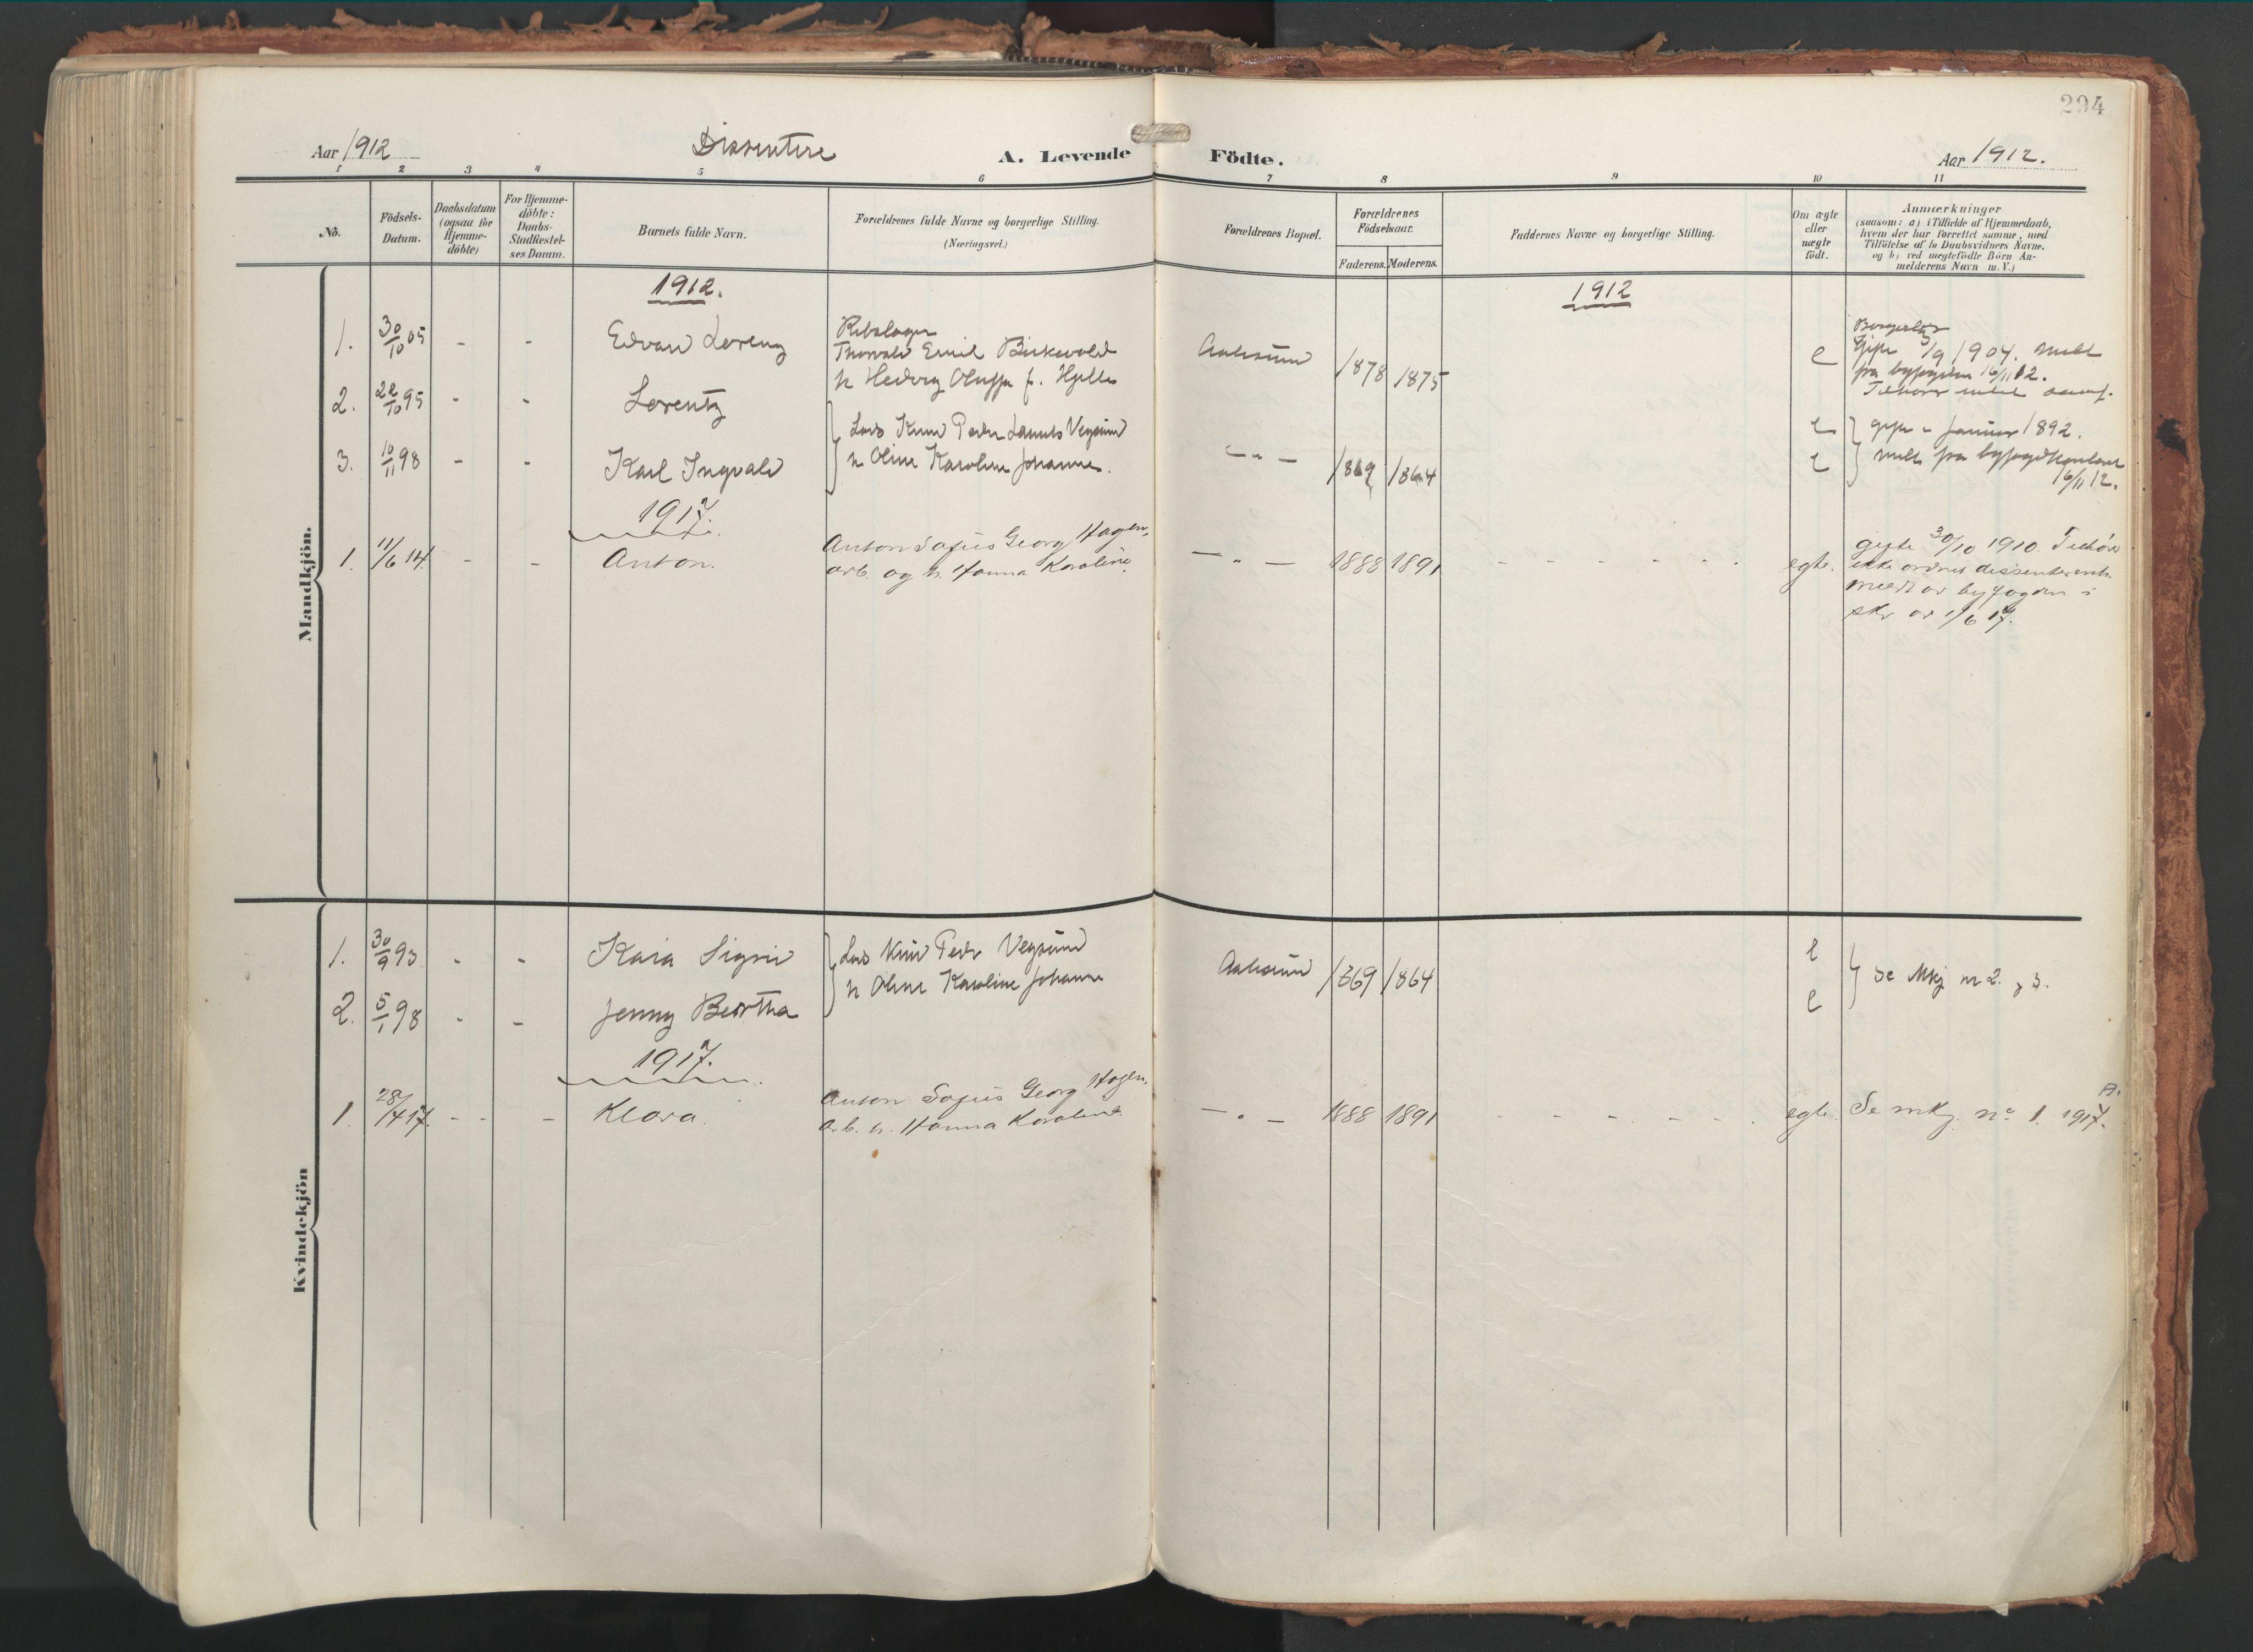 294
Aar 1912
Dissentere
A. Levende Födte.
Aar 1912.
1 2 3 4 5 6 7 8 9 10 11
No.
Födsels-
Datum.
Daabsdatum
(ogsaa for
Hjemme-
döbte)
For Hjemme-
döbte:
Daabs-
Stadfæstel-
ses Datum.
Barnets fulde Navn.
Forældrenes fulde Navne og borgerlige Stilling.
(Næringsvei.)
Forældrenes Bopæl.
Forældrenes
Födselsaar.
Faderens. Moderens.
Faddernes Navne og borgerlige Stilling.
Om ægte
eller
uægte
födt.
Anmærkninger
(saasom: a) i Tilfælde af Hjemmedaab,
hvem der har forrettet samme, med
Tilföielse af to Daabsvidners Navne.
og b) ved uægtefödte Börn An-
melderens Navn m. V.)
Mandkjön.
1912.
1912
1. 30/10 05 - - Edvard Lorenz
Rebslager
Thorvald Emil Birkevold
h Hedvig Oluffa f. Hjelle
Aalesund 1878 1875 e
Borgerlig
Gift 3/9 1904. Meldt
fra byfogden 16/11 12.
2. 22/10 95 - - Lorentz
3. 10/11 98 - - Karl Ingvald
Lars Knud Peder Vegsund
h Oline Karoline Johanne.
- " - 1869 1864 e e
gift i Januar 1892.
meldt fra byfogdkontoret
16/11 12.
1917.
1. 11/6 14. - - Anton.
Anton Sofus Georg Hagen,
arb. og h. Hanna Karoline.
- " - 1888 1891 egte.
gifte 30/10 1910. Tilhører
ikke ordnet dissentermh.
meldt av byfogden i
skr av 1/6 17.
Kvindekjön
1. 30/9 93 - - Kaia Signe
2. 5/1 98 - - Jenny Bertha
Lars Knud Peder Vegsund
h Oline Karoline Johanne
Aalesund 1869 1864 e e
Se Mkj nr 2. og 3.
1917.
1. 28/4 17. - - - Klara.
Anton Sofus Georg Hagen,
arb. h. Hanna Karoline
- " - 1888 1891 egte.
Se mkj. no 1. 1917. A.